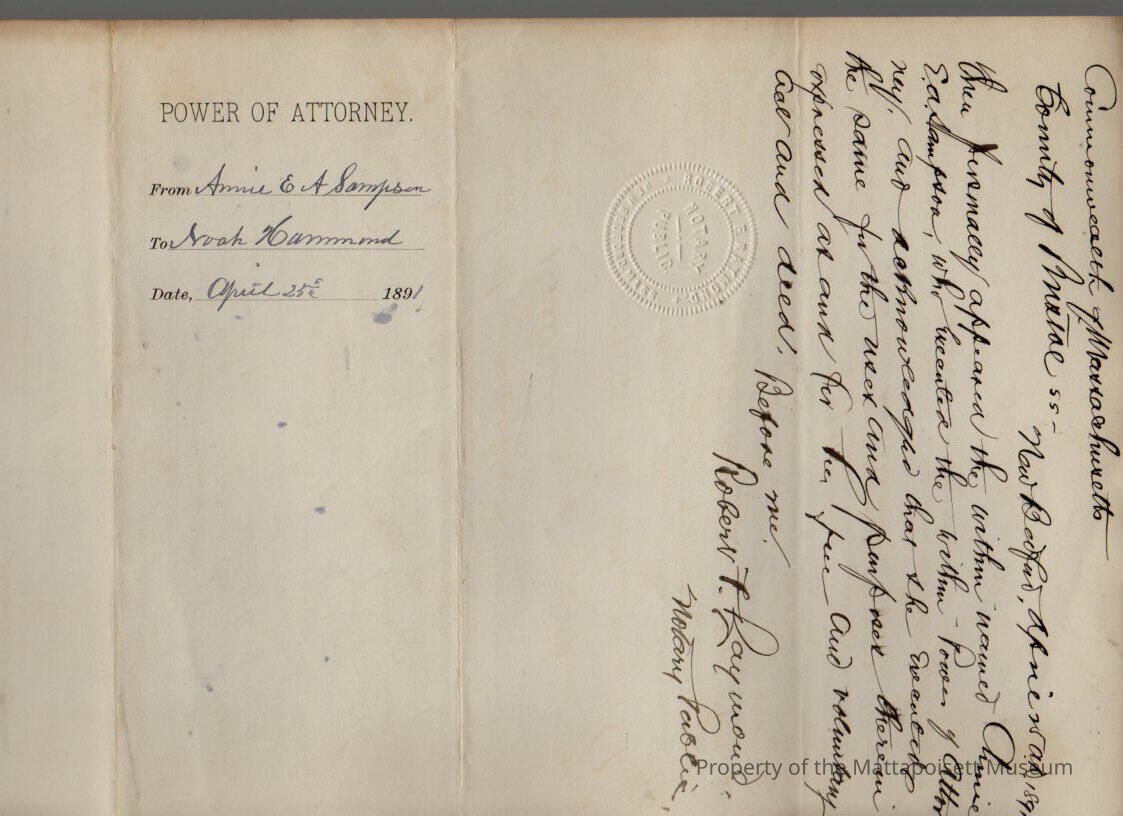 POWER OF ATTORNEY.
From Annie E A Sampson
To Noah Hammond
Date, April 25th 1891
ROBERT NOTARY PUBLIC
Commonwealth of Massachusetts
County of Bristol ss- New Bedford, April 1891
then personally appeared the within named Annie
E. A. Sampson, who executed the within Power of Attor
ney, and acknowledged that she executed
the same for the uses and purposes therein
expressed as and for her free and voluntary
act and deed. Before me.
Robert Raymond
Notary Public.
Property of the Mattapoisett Museum